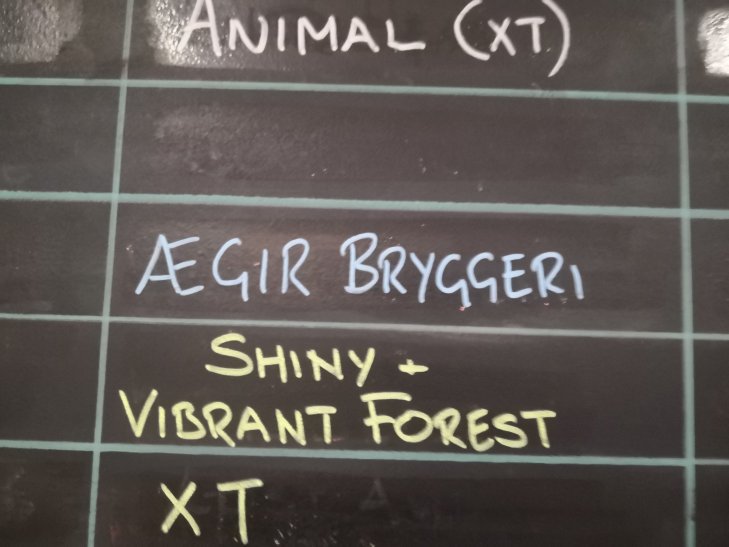 ANIMAL (XT)
ÆGIR BRYGGERI
SHINY +
VIBRANT FOREST
XT